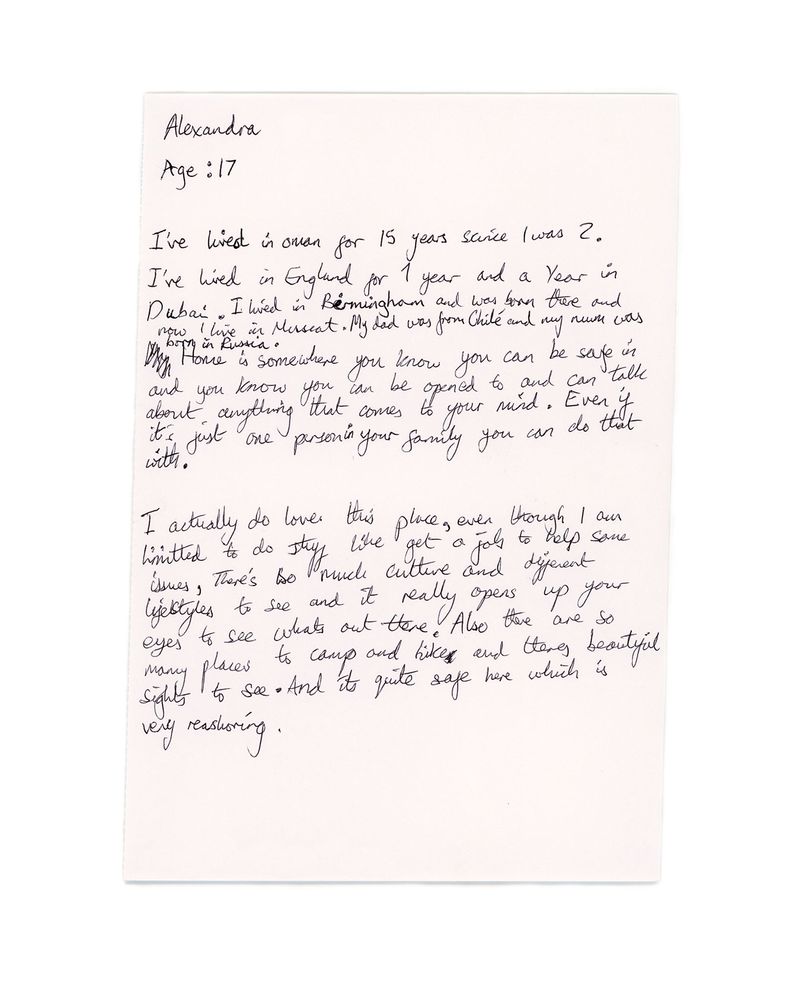 Alexandra
Age : 17
I've lived in oman for 15 years scince I was 2.
I've lived in England for 1 year and a Year in
Dubai. I lived in Birmingham and was born there and
now I live in Muscat. My dad was from Chilé and my mum was
born in Russia.
Home is somewhere you know you can be safe in
and you know you can be opened to and can talk
about anything that comes to your mind. Even if
it's just one person in your family you can do that
with.
I actually do love this place, even though I am
limitted to do stuff like get a job to help some
issues, There's so much culture and different
lifestyles to see and it really opens up your
eyes to see whats out there. Also there are so
many places to camp and hike, and theres beautiful
sights to see. And its quite safe here which is
very reashoring.